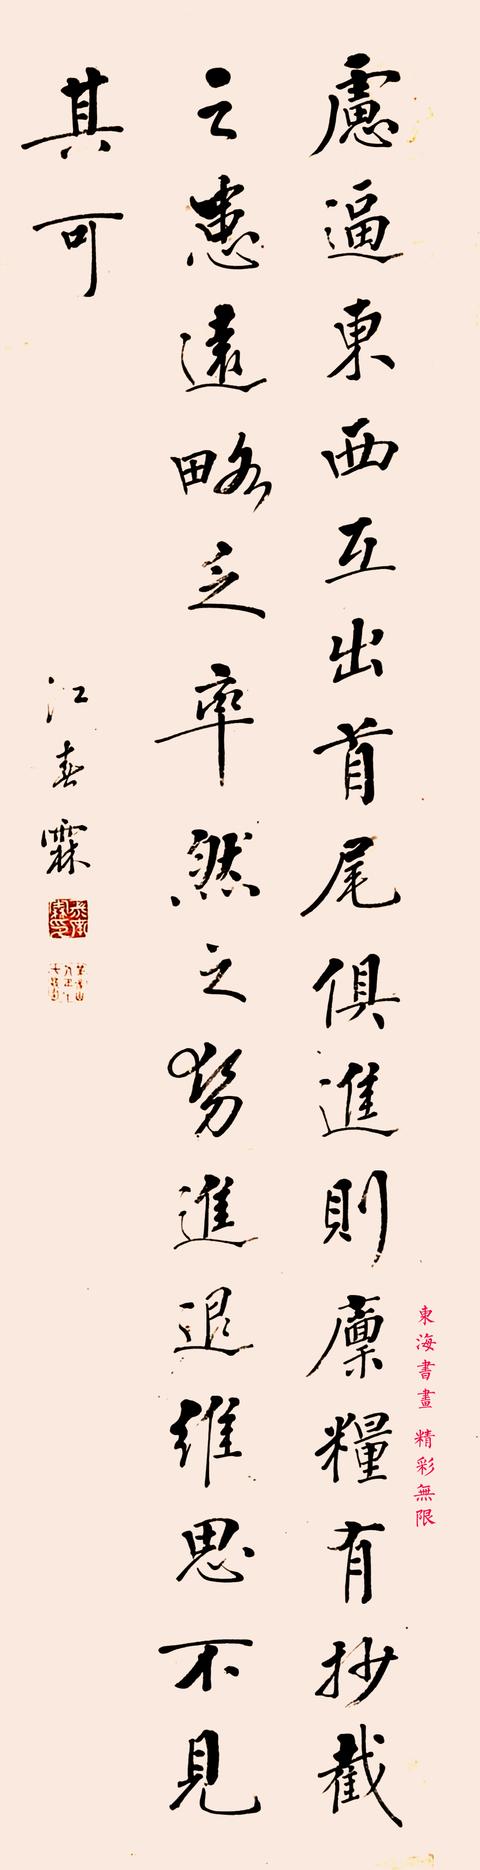 東海書畫 精彩無限
慮逼東西互出首尾俱進則廩糧有抄截
之患遠略乏率然之勢進退維思不見
其可
江春霖